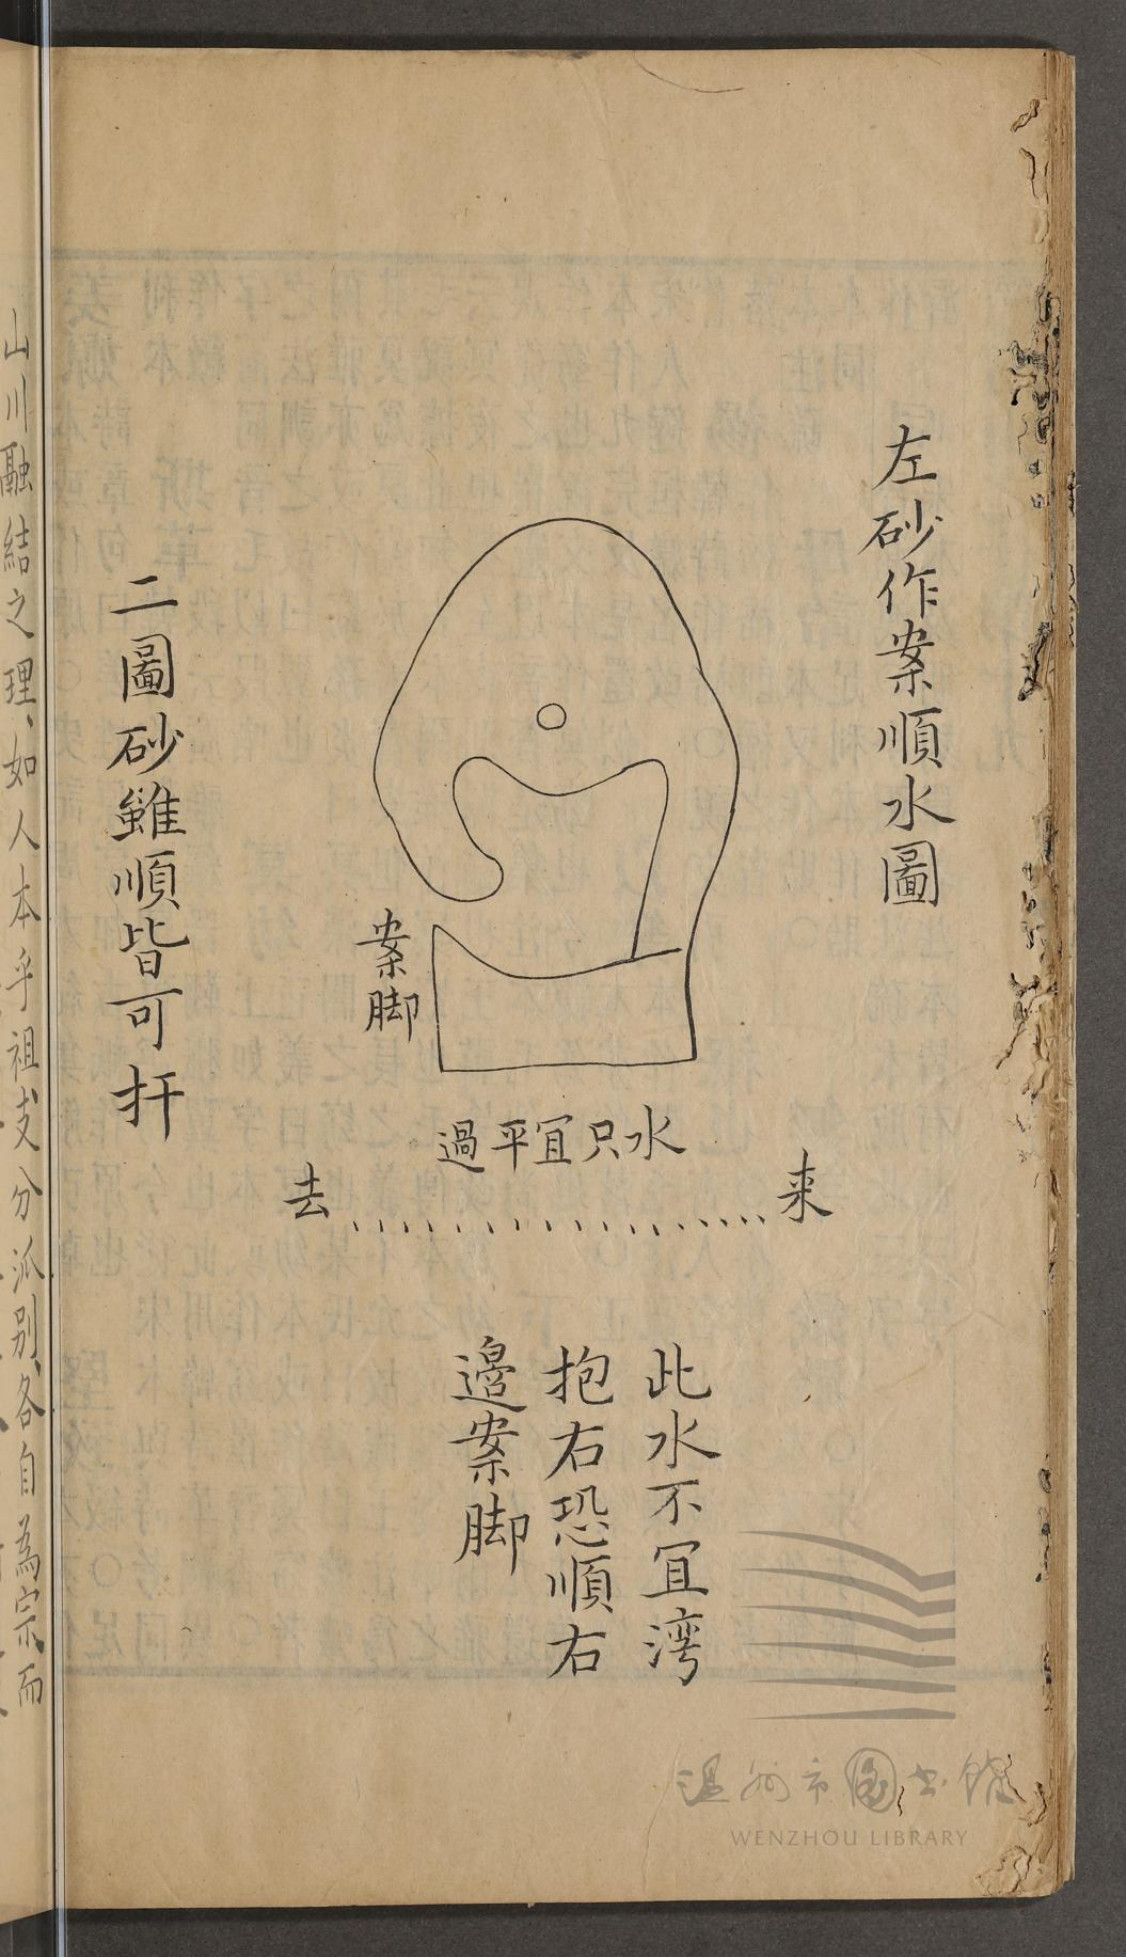 左砂作案順水圖
案脚
水只宜平過
来
去
此水不宜湾
抱右恐順右
邉案脚
二圖砂雖順皆可扦
山川融結之理、如人本乎祖支分派别、各自為宗而
温州市图书馆
WENZHOU LIBRARY